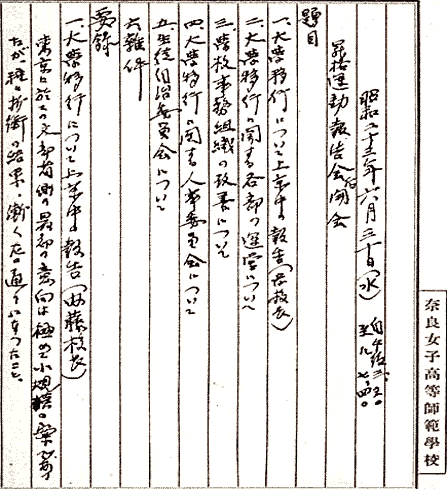 奈良女子高等師範學校
昭和二十三年六月三十日(水) 自午後三、三〇 至〃 七、四〇
昇格運動報告会后開会
題目
一、大學移行について上京中ノ報告(学校長)
二、大學移行ニ関する各部の運営について
三、學校事務組織の改善について
四、大學移行ニ関する人事委員会について
五、生徒自治委員会について
六、雑件
要録
一、大學移行について上京中ノ報告(藤校長)
東京に於ての文部省側の最初の意向は極めて小規模の案
たが種々折衝の結果、漸く左の通りになつたこと、